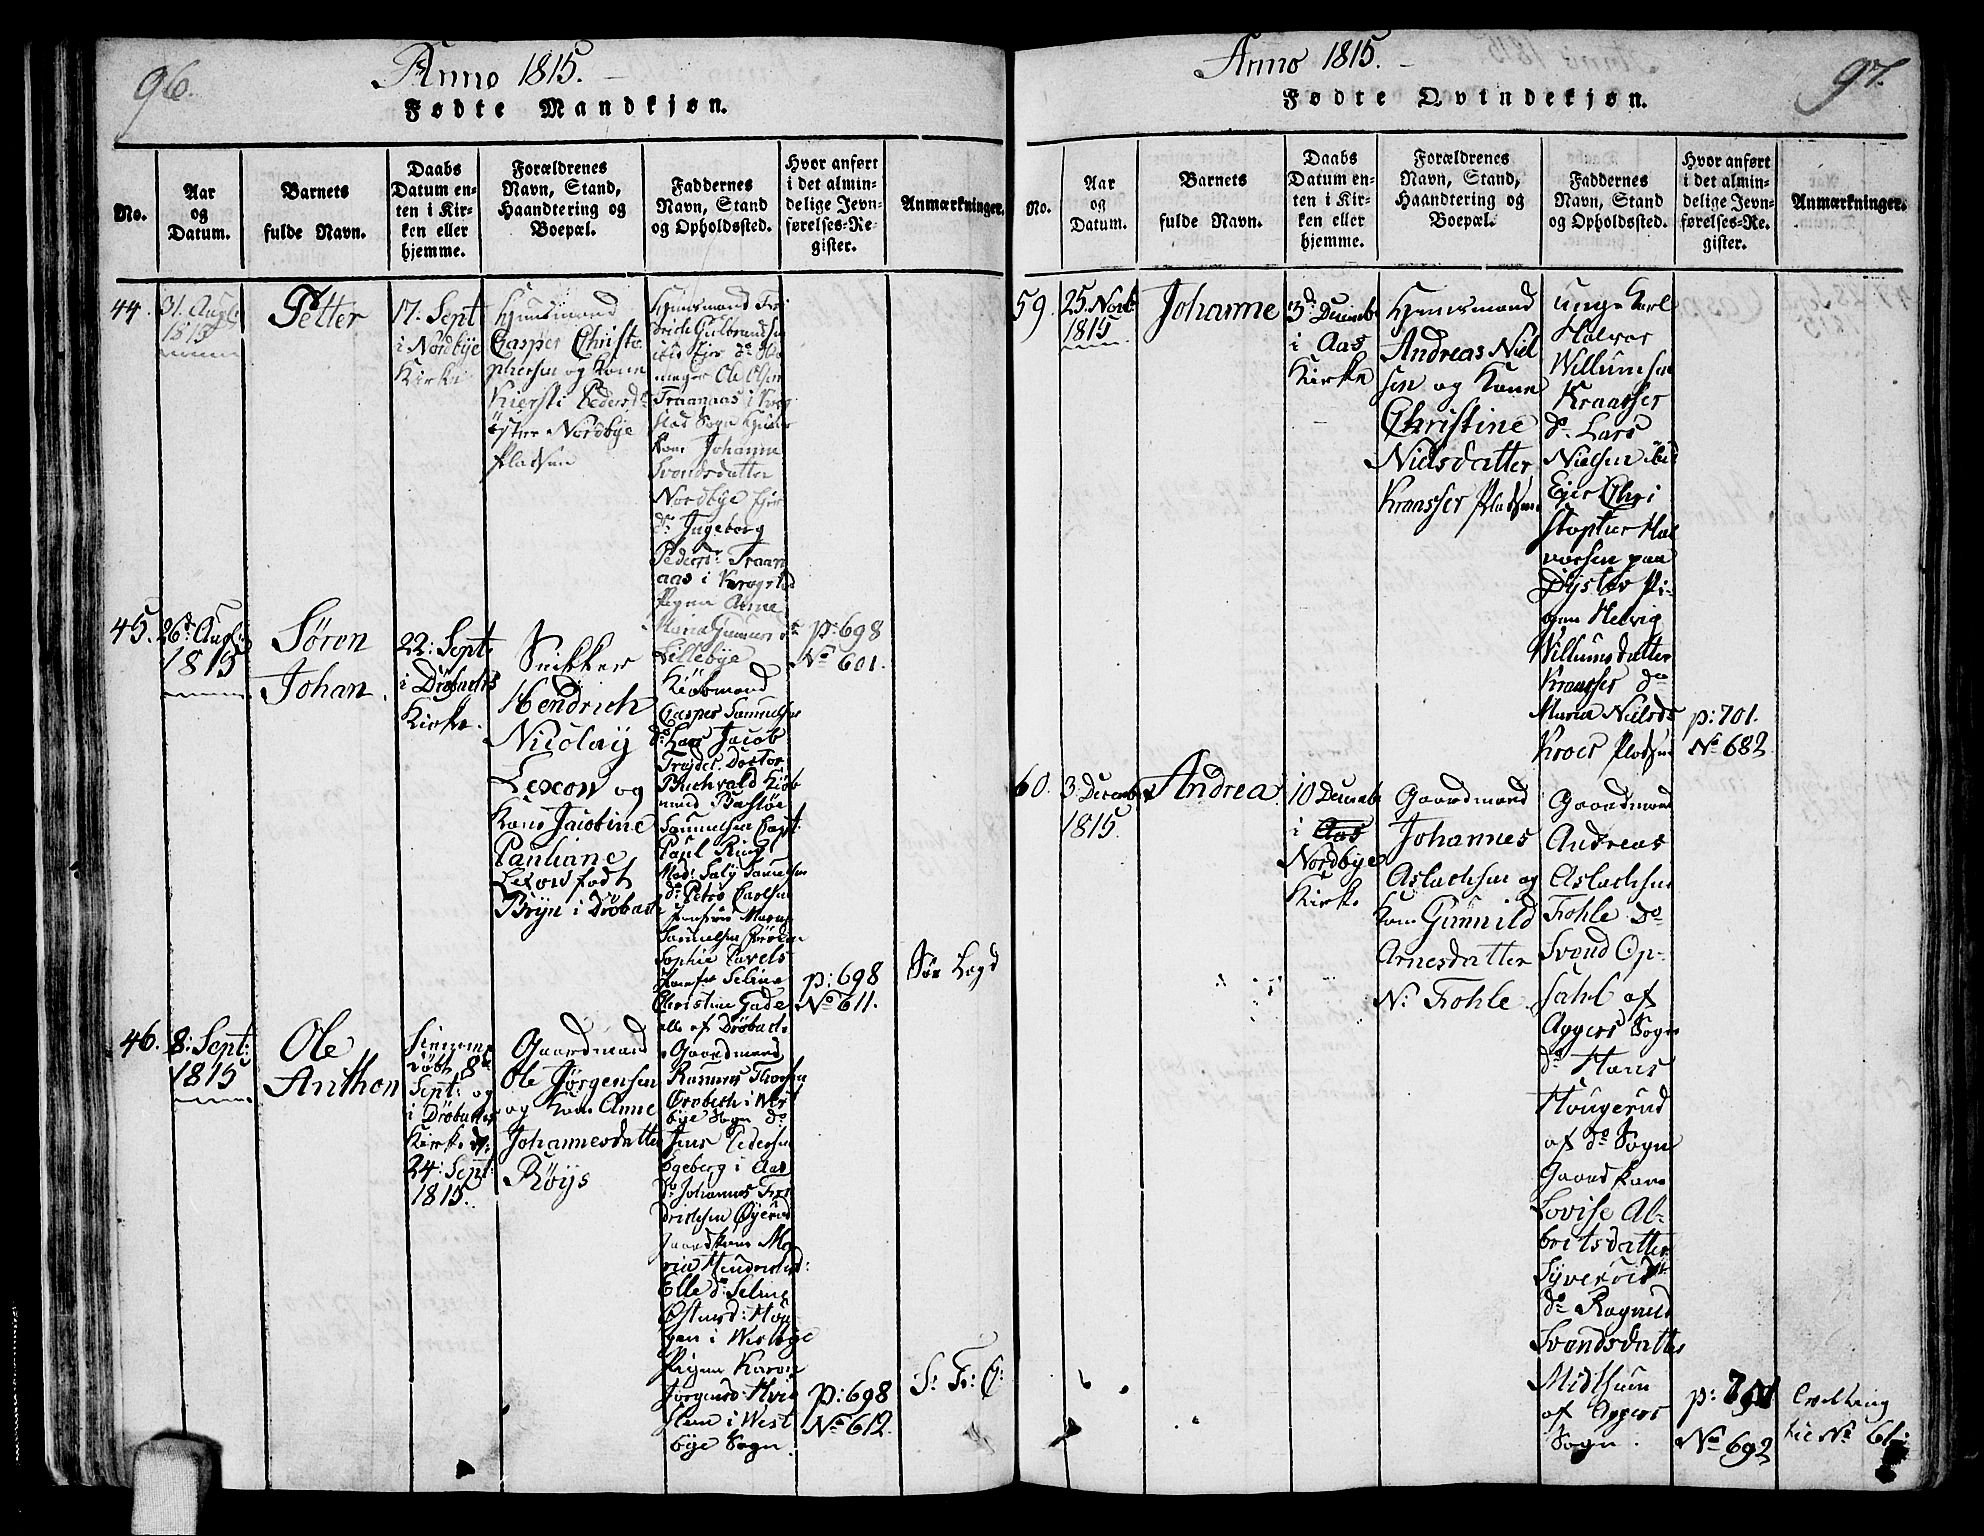 96.
Anno 1815.
Fødte Mandkjøn.
No.
Aar
og
Datum.
Barnets
fulde Navn.
Daabs
Datum en-
ten i Kir-
ken eller
hjemme.
Forældrenes
Navn, Stand,
Haandtering og
Boepæl.
Faddernes
Navn, Stand
og Opholdssted.
Hvor anført
i det almin-
delige Jevn-
førelses-Re-
gister.
Anmærkninger.
44.
31. Augs
1815
Petter
17. Sept
i Nordbye
Kirke
Huusmand
Casper Christo
phersen og Kone
Kiersti Pedersd
Østre Nordbye
Pladsen
Huusmand Fri
drich Gulbrandsen
ibid Ejer do
Ole Olsen
Traanaas i Krog
stad Sogn
Kone Johanne
Svendsdatter
Nordbye Ejer
do Ingeborg
Peders: Traan
aas i Krogstad
Pigen Anne
Maria Gunnersd
Lillebye
p: 698
No 601.
45.
26 Augs:
1815
Søren
Johan.
22: Sept
i Drøbachs
Kirke.
Snekker
Hendrich
Nicolay
Lexow og
Kone Jacobine
Pauliane
Lexow født
Bryn i Drøbach
Kiøbmand
Casper Samuelsen
do Lars Jacob
Doctor
Buchwald Kiøb
mand
Samuelsen Capt:
Paul Ring
Mad: Saly Samuelsen
do Petro Carlsen
Jomfrue Maren
Samuelsen Frøken
Sophie
Jomfr Seline
Christine Gade
alle af Drøbach
p: 698
No 611.
46.
8: Sept:
1815
Ole
Anthon
døbt 8de
Sept: og
i Drøbachs
Kirke d:
24: Sept:
1815.
Gaardmand
Ole Jørgensen
og Kone Anne
Johannesdatter
Røiys
Gaardmand
Rasmus Thorsen
i West
bye Sogn do
Jens Pedersen
Egeberg i Aas
do Johannes Fre
drichsen Øyerud
Gaardkone Ma
ria Hendrichsd:
Elle do Seline
Østensd: Hou
gen i Westbye
Pigen Karen
Jørgensd: Hvid
sten i West
bye Sogn.
p: 698
No 612.
S: F: C:
Anno 1815.
97.
Fødte Qvindekjøn.
No.
Aar
og
Datum.
Barnets
fulde Navn.
Daabs
Datum en-
ten i Kir-
ken eller
hjemme.
Forældrenes
Navn, Stand,
Haandtering og
Boepæl.
Faddernes
Navn, Stand
og Opholdssted.
Hvor anført
i det almin-
delige Jevn-
førelses-Re-
gister.
Anmærkninger.
59.
25. Novb
1815.
Johanne
3d Decemb
i Aas
Kirke
Huusmand
Andreas Niel
sen og Kone
Christine
Nielsdatter
Kraasser Pladsen
unge Karl
Halvor
Willumsen
Kraasser
do Lars
Nielsen ibid
Ejer Chri
stopher Hal
vorsen paa
Dyster Pi-
gen Helvig
Willumsdatter
Kraasser do
Maria Nielsd
Kroer Pladsen
p: 701.
No 682
60.
3 Decemb
1815.
Andrea.
10 Decemb
i Aas
Nordbye
Kirke
Gaardmand
Johannes
Aslachsen og
Kone Gunnild
Arnesdatter
N: Frohle.
Gaardmand
Andreas
Aslachsen
Frohle do
Svend Op-
sahl af
Aggers Sogn
do Hans
Hougerud
af do Sogn
Gaardkone
Lovise Al-
britsdatter
Syverud
do Ragnild
Svendsdatter
Midthuun
af Aggers
Sogn.
No 692
tvilling
til No 61.